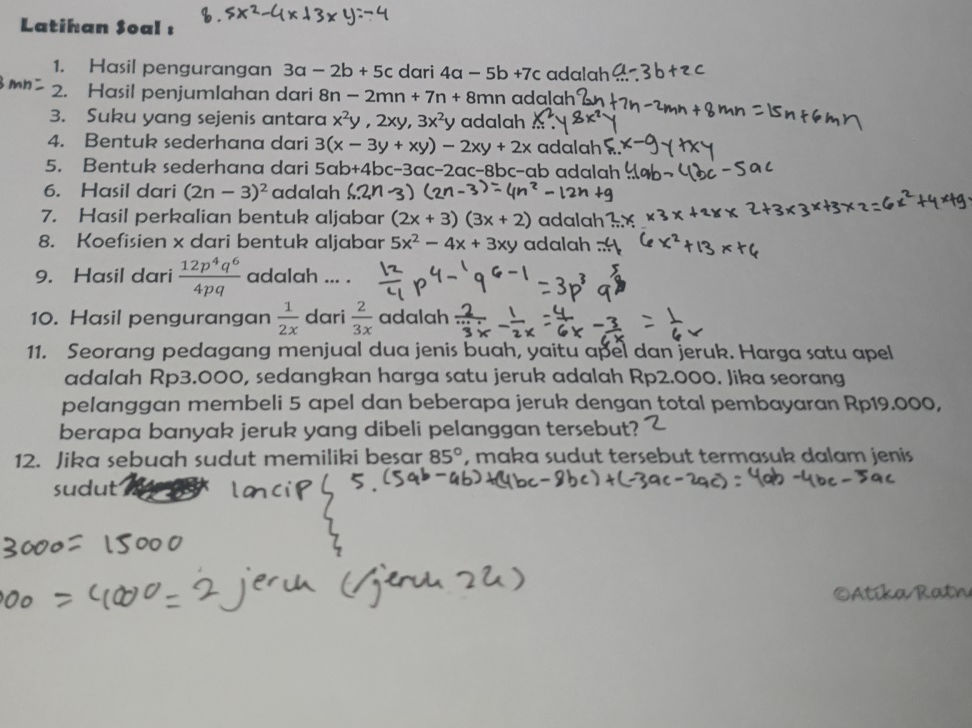 8. 5x²-4x+3xy=-4
Latihan Soal :
1. Hasil pengurangan 3a – 2b + 5c dari 4a – 5b +7c adalah.... a-3b+2c
8mn= 2. Hasil penjumlahan dari 8n – 2mn + 7n + 8mn adalah 8n+7n-2mn+8mn=15n+6mn
3. Suku yang sejenis antara x²y , 2xy, 3x²y adalah .... x²y 3x²y
4. Bentuk sederhana dari 3(x – 3y + xy) – 2xy + 2x adalah... 5x-9y+xy
5. Bentuk sederhana dari 5ab+4bc-3ac-2ac-8bc-ab adalah ... 4ab-4bc-5ac
6. Hasil dari (2n – 3)² adalah ... (2n-3) (2n-3)=4n²-12n+9
7. Hasil perkalian bentuk aljabar (2x + 3) (3x + 2) adalah ... 2x x3x+2x x 2+3x3x+3x2=6x²+4x+9
8. Koefisien x dari bentuk aljabar 5x² – 4x + 3xy adalah ... -4 6x²+13x+6
9. Hasil dari 12p⁴q⁶/4pq adalah ... . 12/4 p4-1 q6-1 =3p³ q⁵
10. Hasil pengurangan 1/2x dari 2/3x adalah .... 2/3x - 1/2x = 4/6x - 3/6x = 1/6x
11. Seorang pedagang menjual dua jenis buah, yaitu apel dan jeruk. Harga satu apel
adalah Rp3.000, sedangkan harga satu jeruk adalah Rp2.000. Jika seorang
pelanggan membeli 5 apel dan beberapa jeruk dengan total pembayaran Rp19.000,
berapa banyak jeruk yang dibeli pelanggan tersebut? 2
12. Jika sebuah sudut memiliki besar 85°, maka sudut tersebut termasuk dalam jenis
sudut lancip
5. (5ab-ab)+(4bc-8bc)+(-3ac-2ac)=4ab-4bc-5ac
3000= 15000
000 = 4000= 2 jeruk
©Atika Ratn